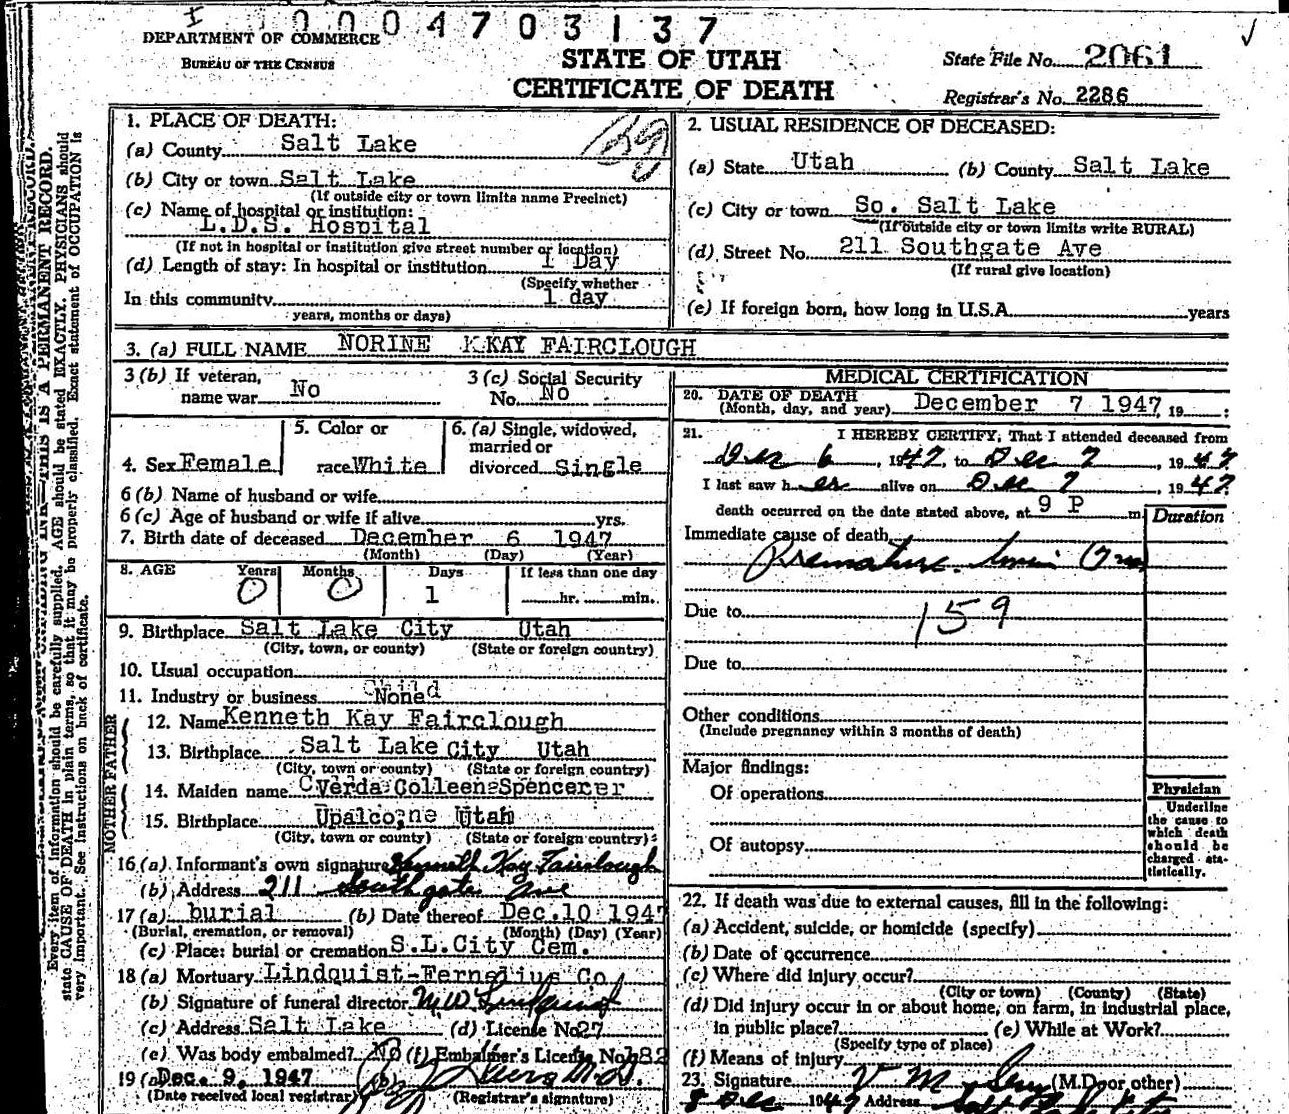 0004703137
DEPARTMENT OF COMMERCE
BUREAU OF THE CENSUS
STATE OF UTAH
CERTIFICATE OF DEATH
State File No. 2061
Registrar's No. 2286
1. PLACE OF DEATH:
(a) County Salt Lake
(b) City or town Salt Lake
(If outside city or town limits name Precinct)
(c) Name of hospital or institution:
L.D.S. Hospital
(If not in hospital or institution give street number or location)
(d) Length of stay: In hospital or institution 1 Day
(Specify whether
In this community 1 day
years, months or days)
2. USUAL RESIDENCE OF DECEASED:
(a) State Utah (b) County Salt Lake
(c) City or town So. Salt Lake
(If outside city or town limits write RURAL)
(d) Street No. 211 Southgate Ave
(If rural give location)
(e) If foreign born, how long in U.S.A. years
3. (a) FULL NAME NORINE KKAY FAIRCLOUGH
3 (b) If veteran, name war No
3 (c) Social Security No. No
4. Sex Female
5. Color or race White
6. (a) Single, widowed, married or divorced Single
6 (b) Name of husband or wife
6 (c) Age of husband or wife if alive yrs.
7. Birth date of deceased December 6 1947
(Month) (Day) (Year)
8. AGE Years Months Days If less than one day
0 0 1 hr. min.
9. Birthplace Salt Lake City Utah
(City, town, or county) (State or foreign country)
10. Usual occupation
11. Industry or business None
FATHER
12. Name Kenneth Kay Fairclough
13. Birthplace Salt Lake City Utah
(City, town or county) (State or foreign country)
MOTHER
14. Maiden name Verda Colleen Spencer
15. Birthplace Upalco Utah
(City, town or county) (State or foreign country)
16 (a) Informant's own signature Kenneth Kay Fairclough
(b) Address 211 Southgate Ave
17 (a) burial (b) Date thereof Dec. 10 1947
(Burial, cremation, or removal) (Month) (Day) (Year)
(c) Place: burial or cremation S.L.City Cem.
18 (a) Mortuary Lindquist-Fernelius Co
(b) Signature of funeral director
(c) Address Salt Lake (d) License No 27
(e) Was body embalmed? No (f) Embalmer's License No 182
19 (a) Dec. 9, 1947 (b)
(Date received local registrar) (Registrar's signature)
MEDICAL CERTIFICATION
20. DATE OF DEATH
(Month, day, and year) December 7 1947 19
21. I HEREBY CERTIFY, That I attended deceased from
Dec 6, 1947, to Dec 7, 1947
I last saw her alive on Dec 7, 1947
death occurred on the date stated above, at 9 P m
Duration
Immediate cause of death
Premature
Due to 159
Due to
Other conditions
(Include pregnancy within 3 months of death)
Major findings:
Of operations
Of autopsy
Physician
Underline
the cause to
which death
should be
charged sta-
tistically.
22. If death was due to external causes, fill in the following:
(a) Accident, suicide, or homicide (specify)
(b) Date of occurrence
(c) Where did injury occur?
(City or town) (County) (State)
(d) Did injury occur in or about home, on farm, in industrial place,
in public place? (e) While at Work?
(Specify type of place)
(f) Means of injury
23. Signature (M.D. or other)
8 Dec 1947 Address
THIS IS A PERMANENT RECORD.
Every item of information should be carefully supplied. AGE should be stated EXACTLY. PHYSICIANS should
state CAUSE OF DEATH in plain terms, so that it may be properly classified. Exact statement of OCCUPATION is
very important. See instructions on back of certificate.